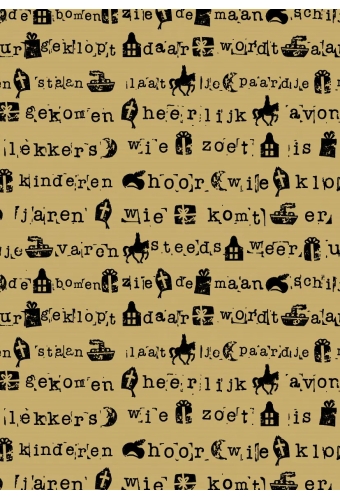 de bomen zie de maan schij
ur geklopt daar wordt aa
en staan laat je paardje
gekomen heerlijk avon
lekkers wie zoet is
kinderen hoor wie klo
jaren wie komt er
je varen steeds weer u
de bomen zie de maan schij
ur geklopt daar wordt aa
en staan laat je paardje
gekomen heerlijk avon
lekkers wie zoet is
kinderen hoor wie klo
jaren wie komt er